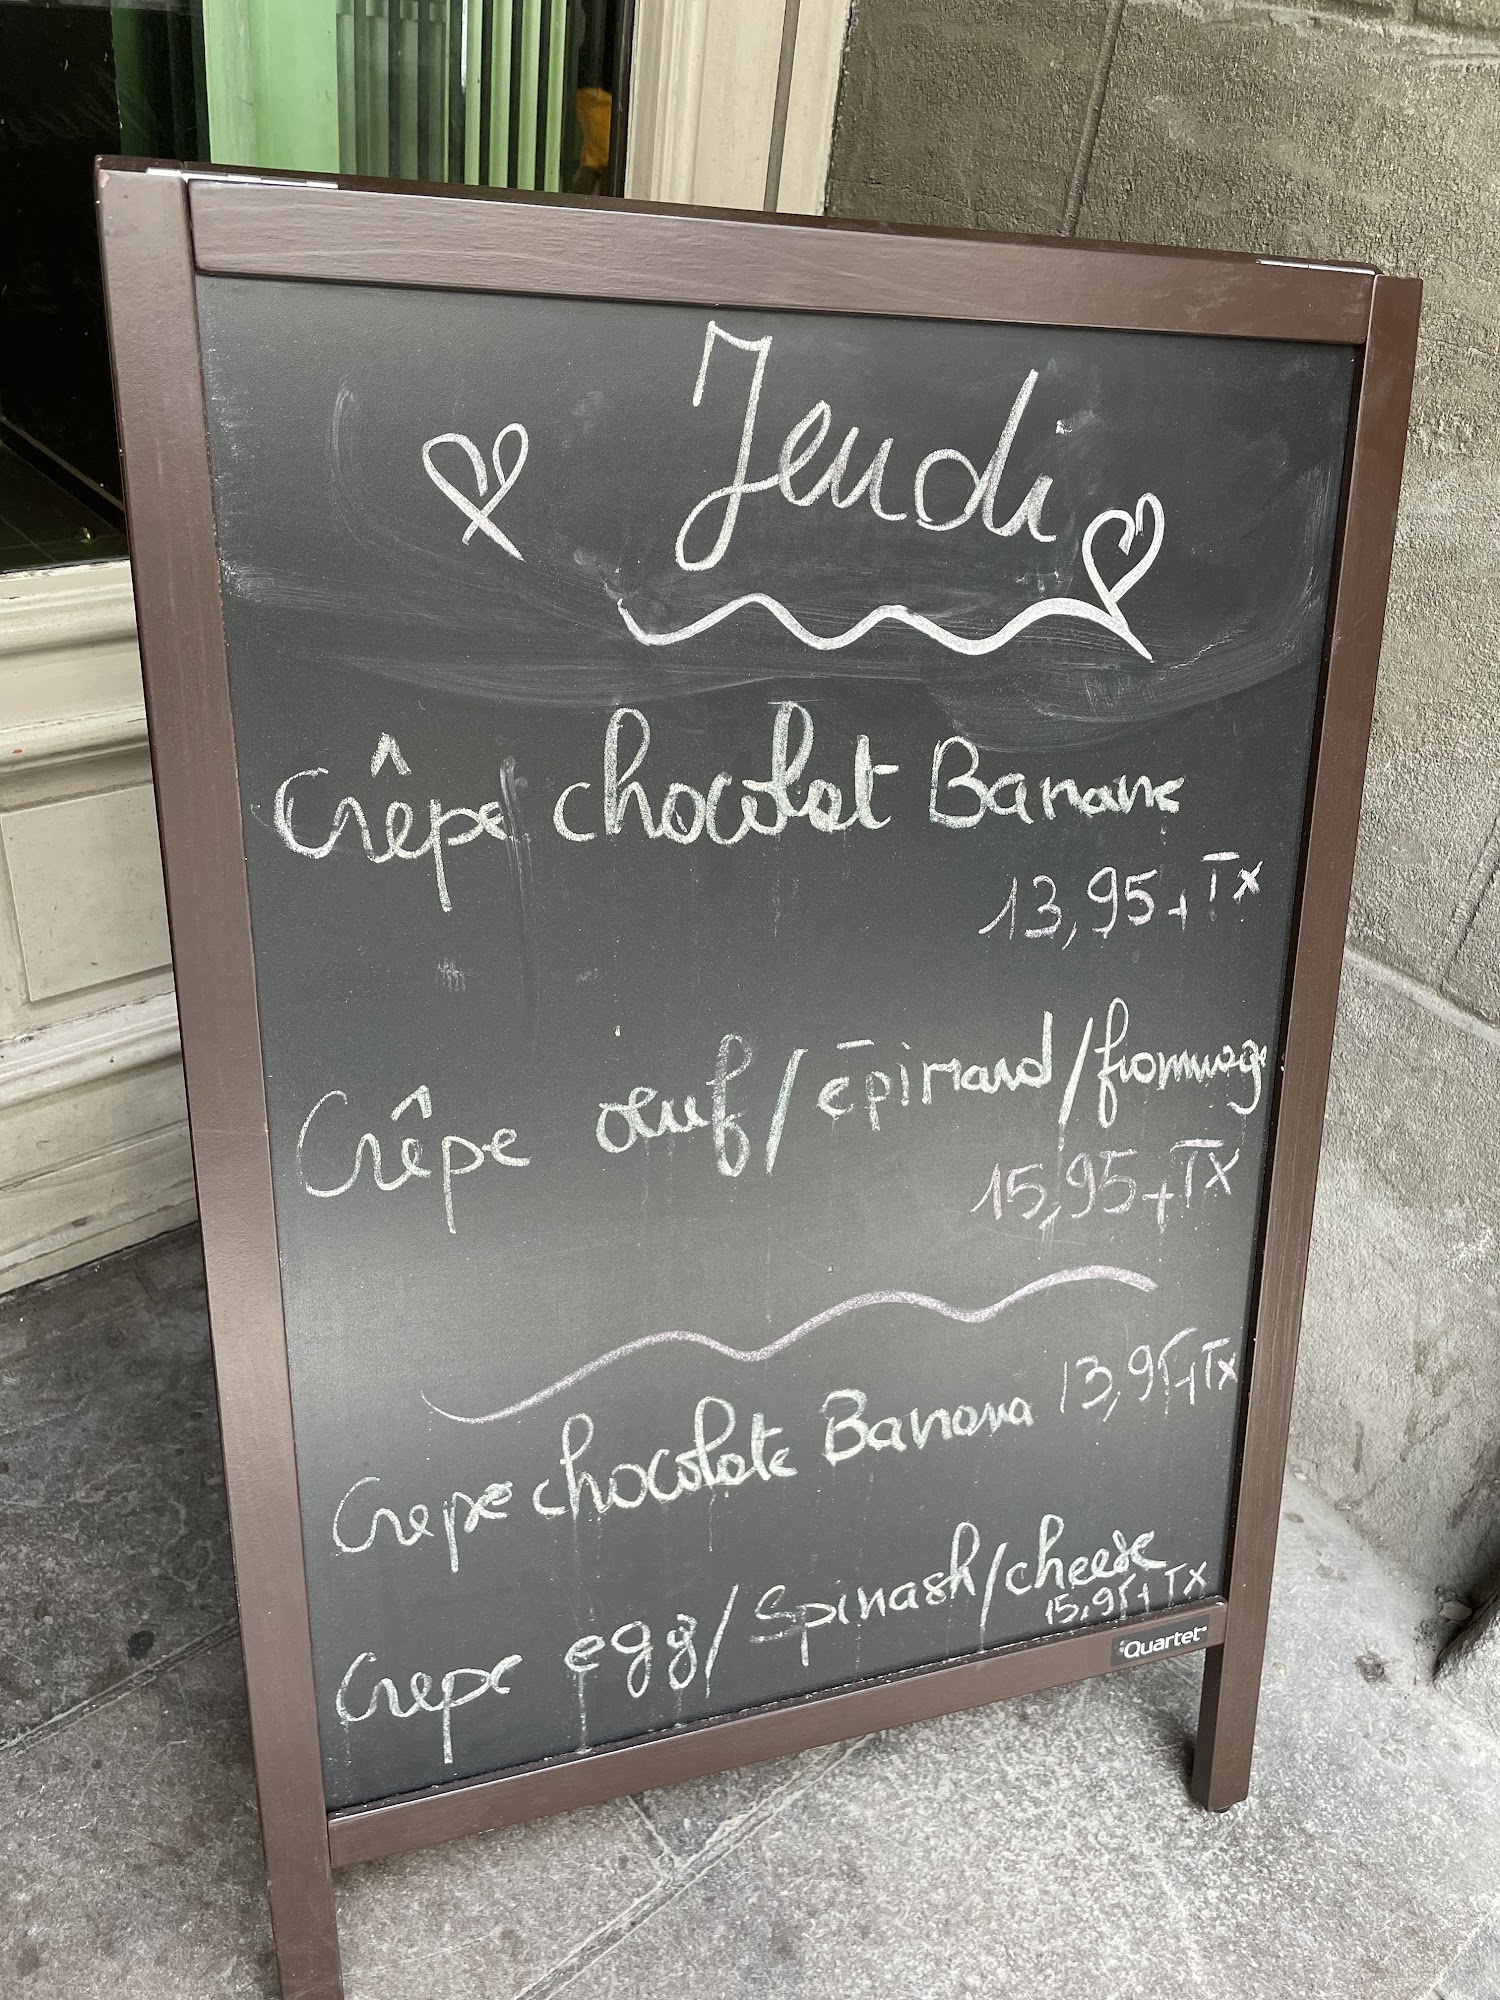 Jeudi
Crêpe chocolat Banane
13,95+Tx
Crêpe œuf/épinard/fromage
15,95+TX
Crepe chocolate Banana 13,95+Tx
Crepe egg/Spinash/cheese
15,95+Tx
Quartet